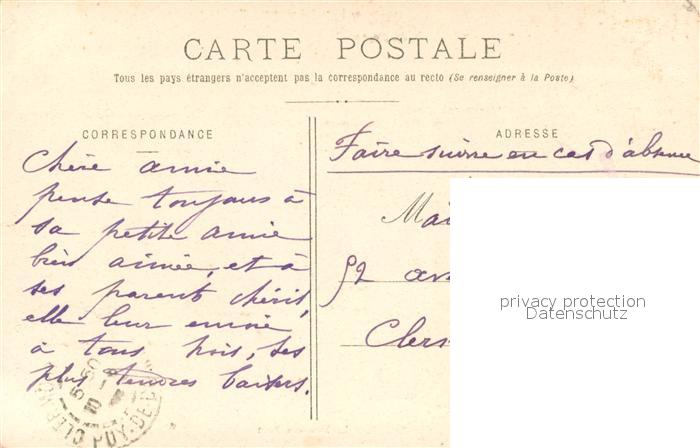 CARTE POSTALE
Tous les pays étrangers n'acceptent pas la correspondance au recto (Se renseigner à la Poste)
CORRESPONDANCE
Chère amie
pense toujours à
sa petite amie
bien aimée, et à
ses parents chéris,
elle leur envoie
à tous trois, ses
plus tendres baisers.
ADRESSE
Faire suivre en cas d'absence
92
privacy protection
Datenschutz
PUY-DE-D